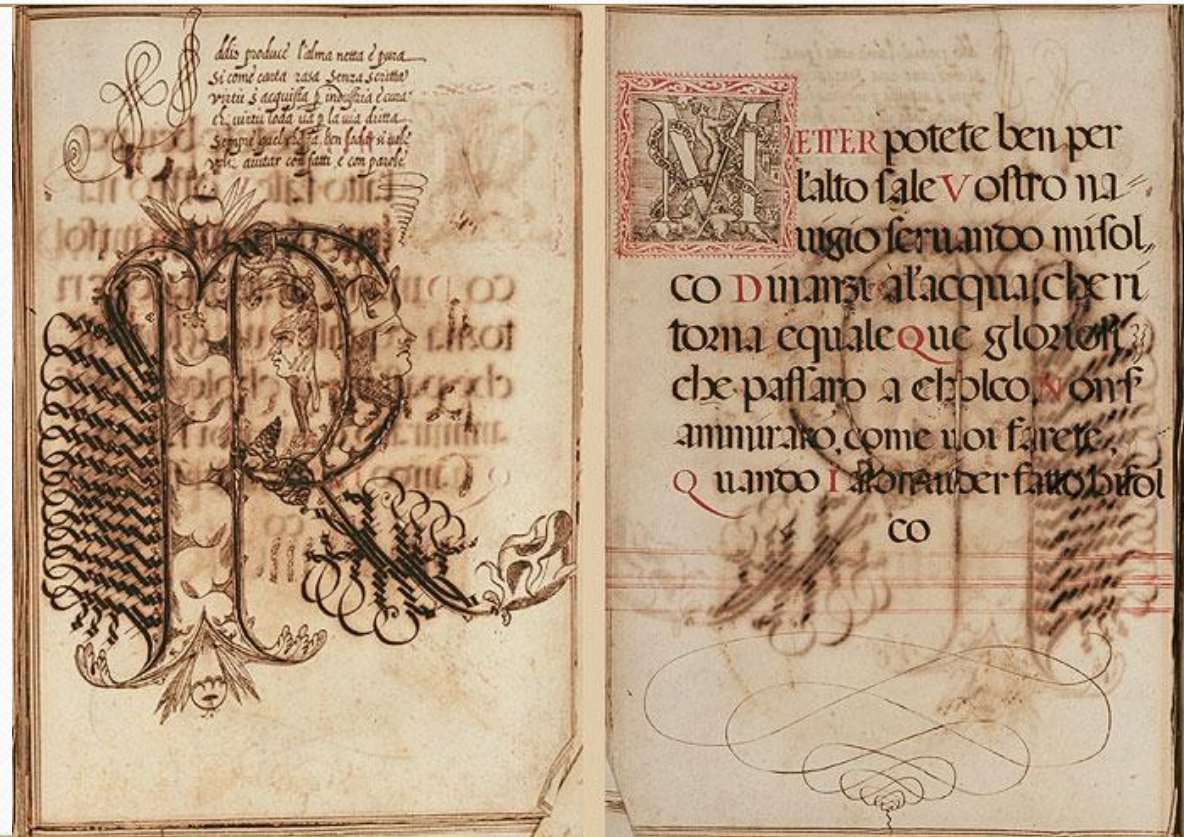 ddio produce l'alma netta è pura
Si come carta rasa Senza scritta
virtù s'acquista p industria è cura
p la via dritta
Sempre
aiutar con fatti e con parole
R
METTER potete ben per
l'alto sale Vostro na
uigio seruando mi sol,
co Dinanzi al'acqua, che ri
torna equale Que gloriosi
che passaro a cholco Non s'
ammiraro, come uoi farete,
Quando Iason uider fatto bifol
co